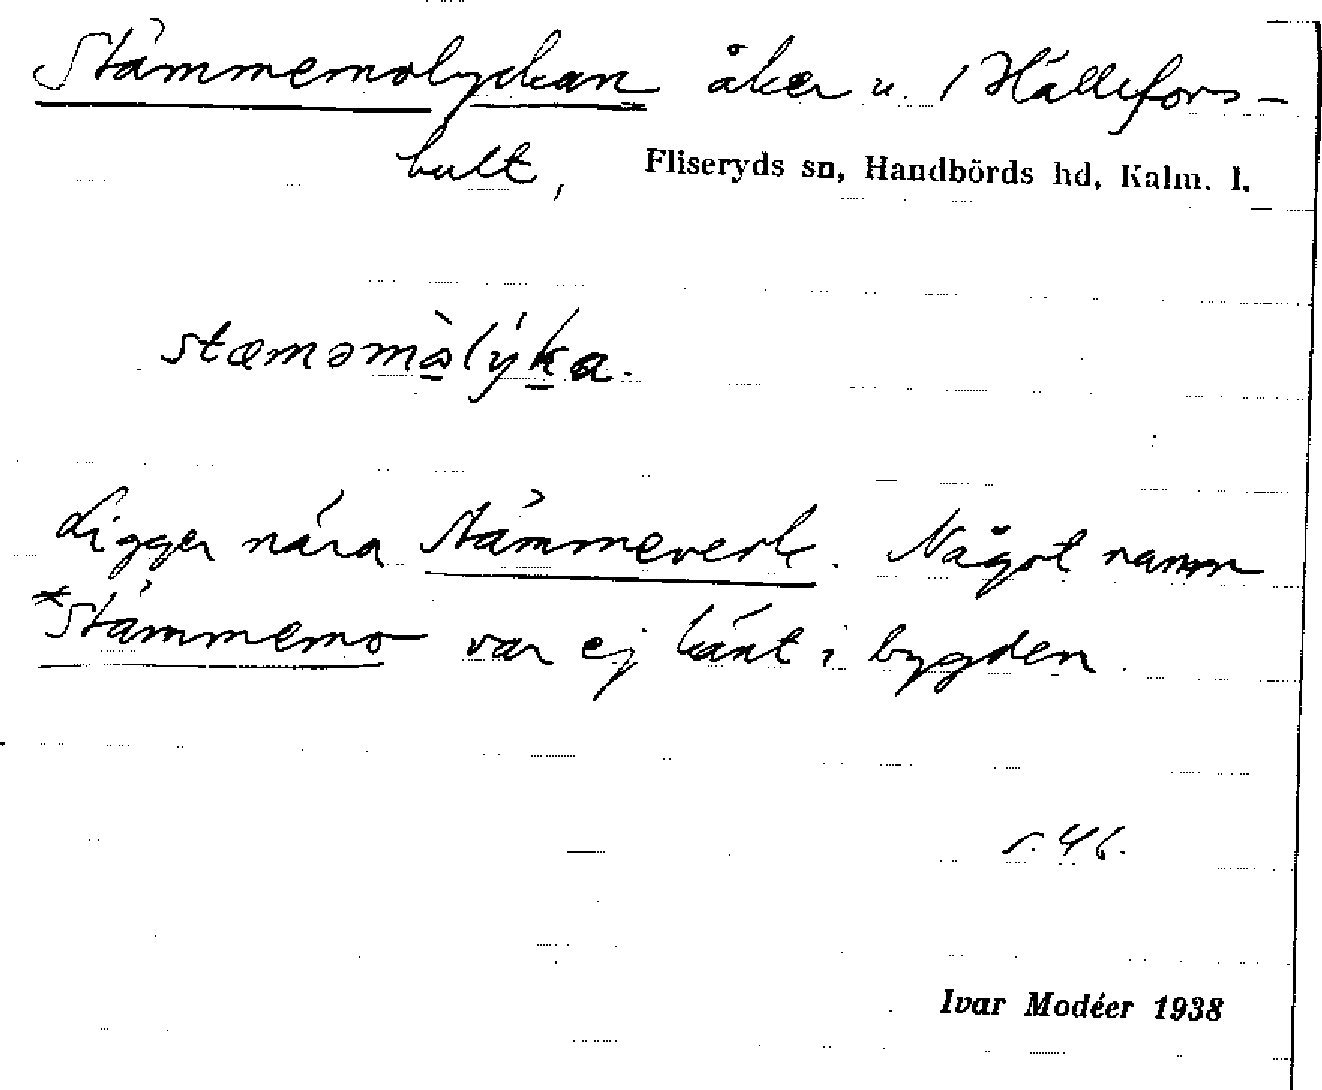 Stämmemolyckan åker u. 1 Hällefors-
hult,
Fliseryds sn, Handbörds hd, Kalm. l.
stæməmòlýka.
Ligger nära Stämmeverk. Något namn
*Stämmemo var ej känt i bygden.
s. 46.
Ivar Modéer 1938